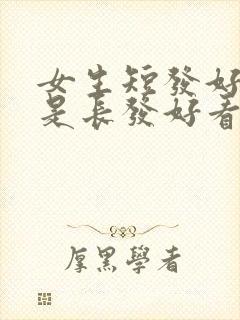 女生短發好
是長發好看
厚黑學者